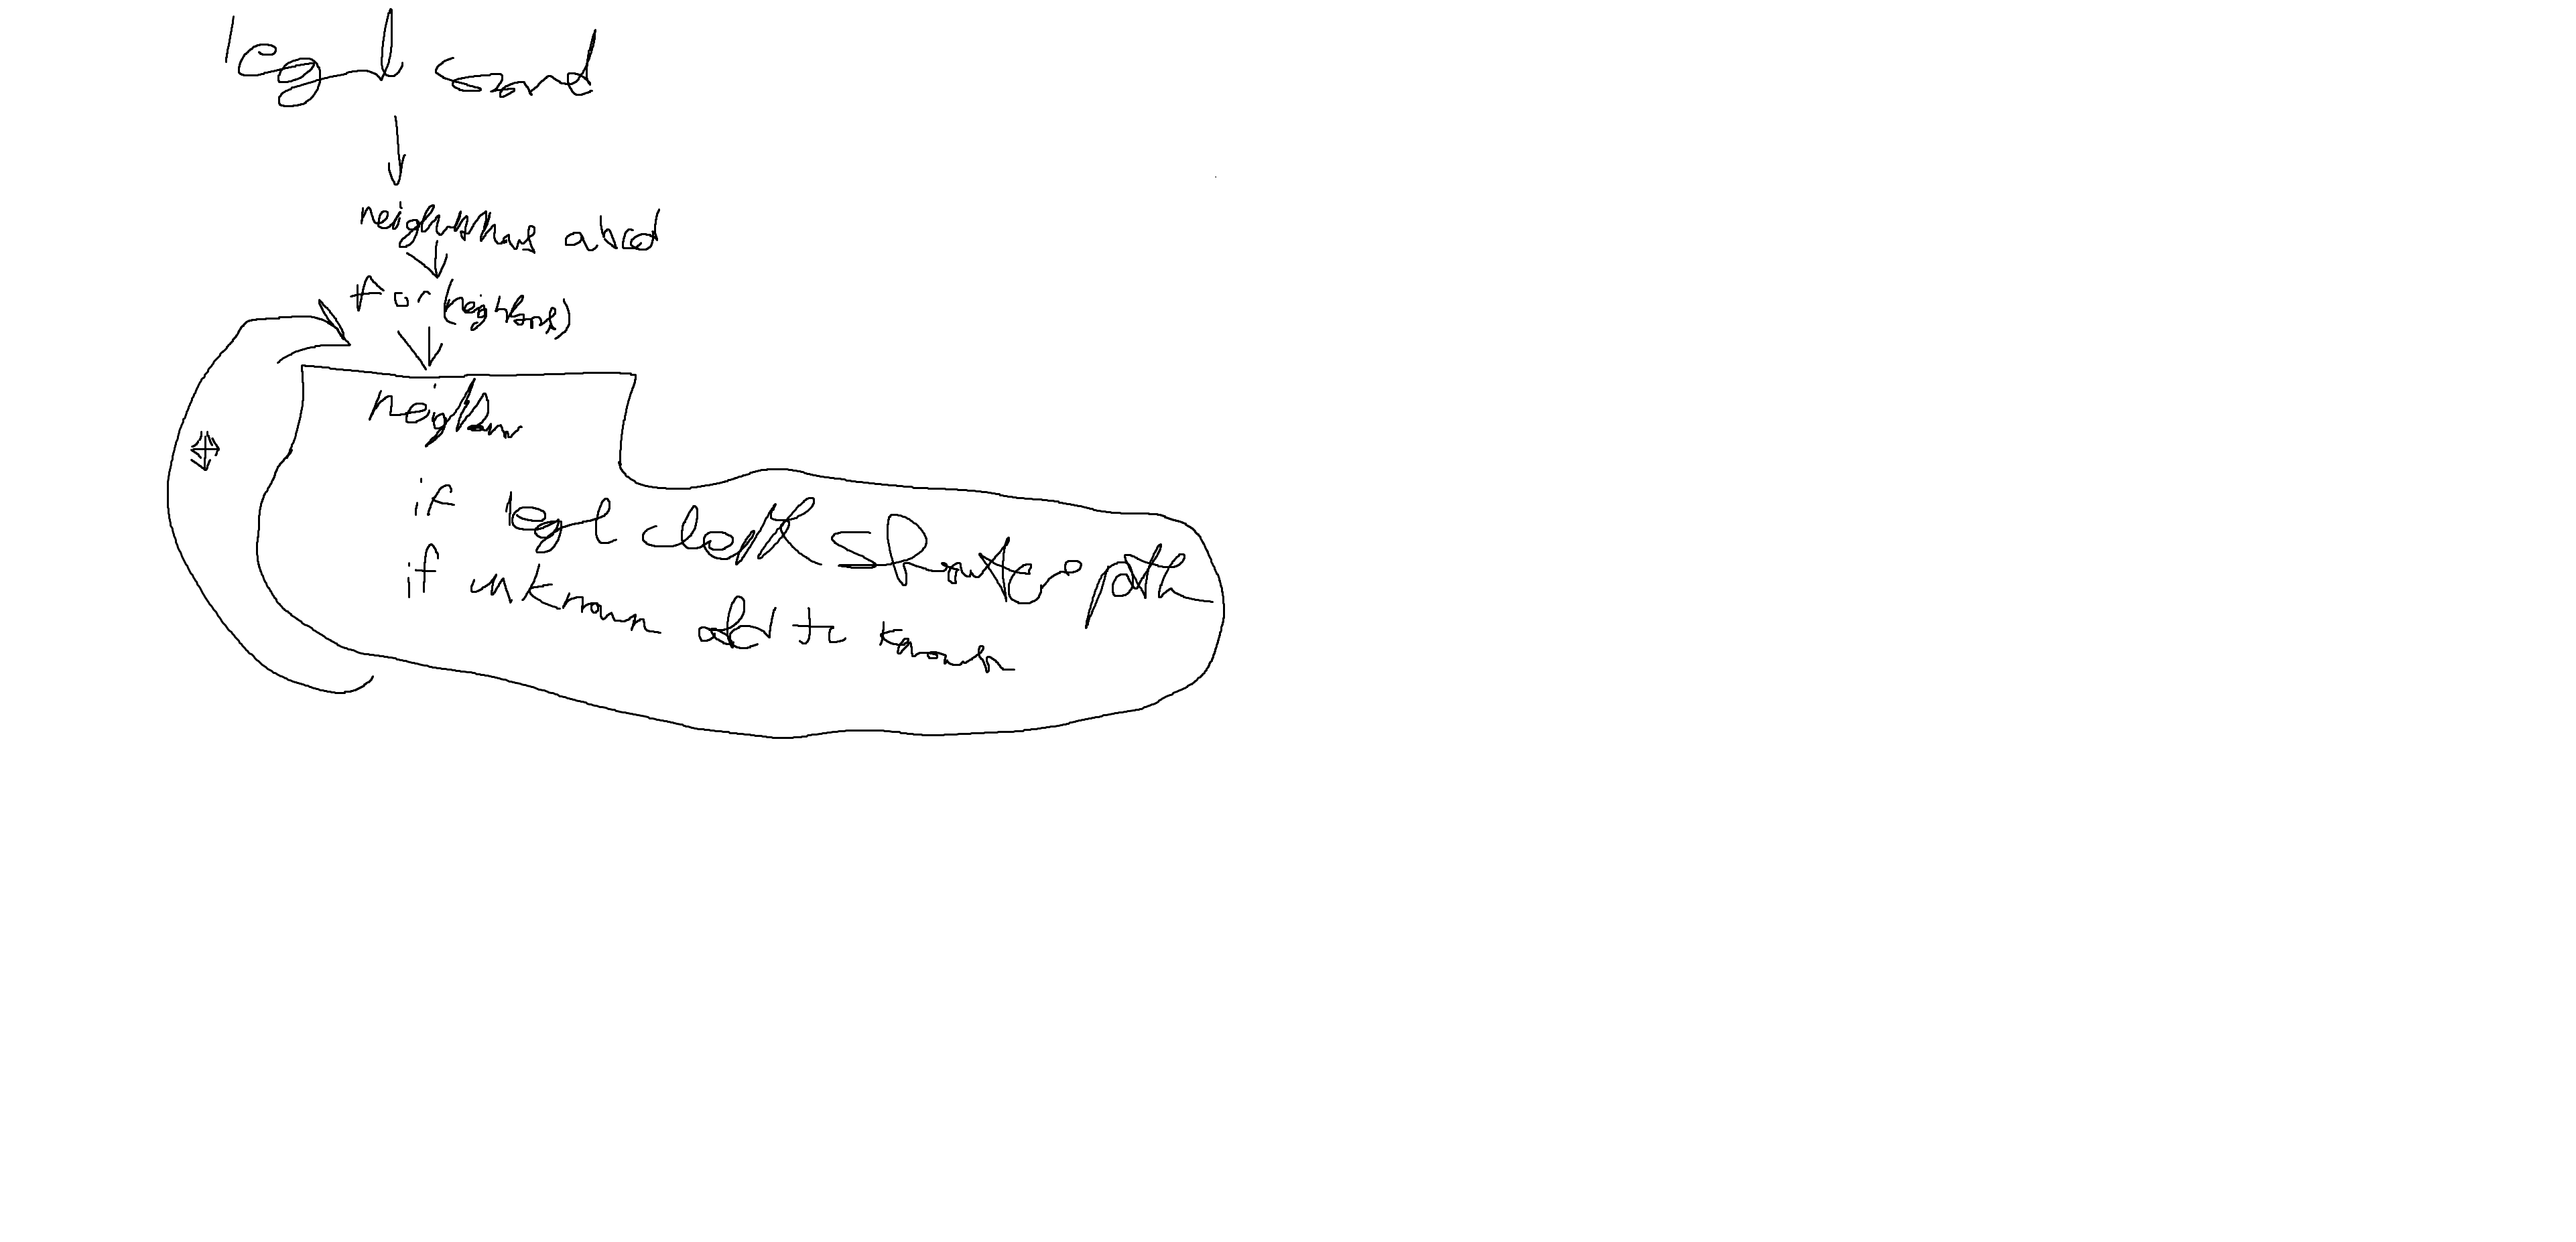 legl
neighbors abcd
for (neighbors)
neighbor
if legl check shorter path
if unknown add to known